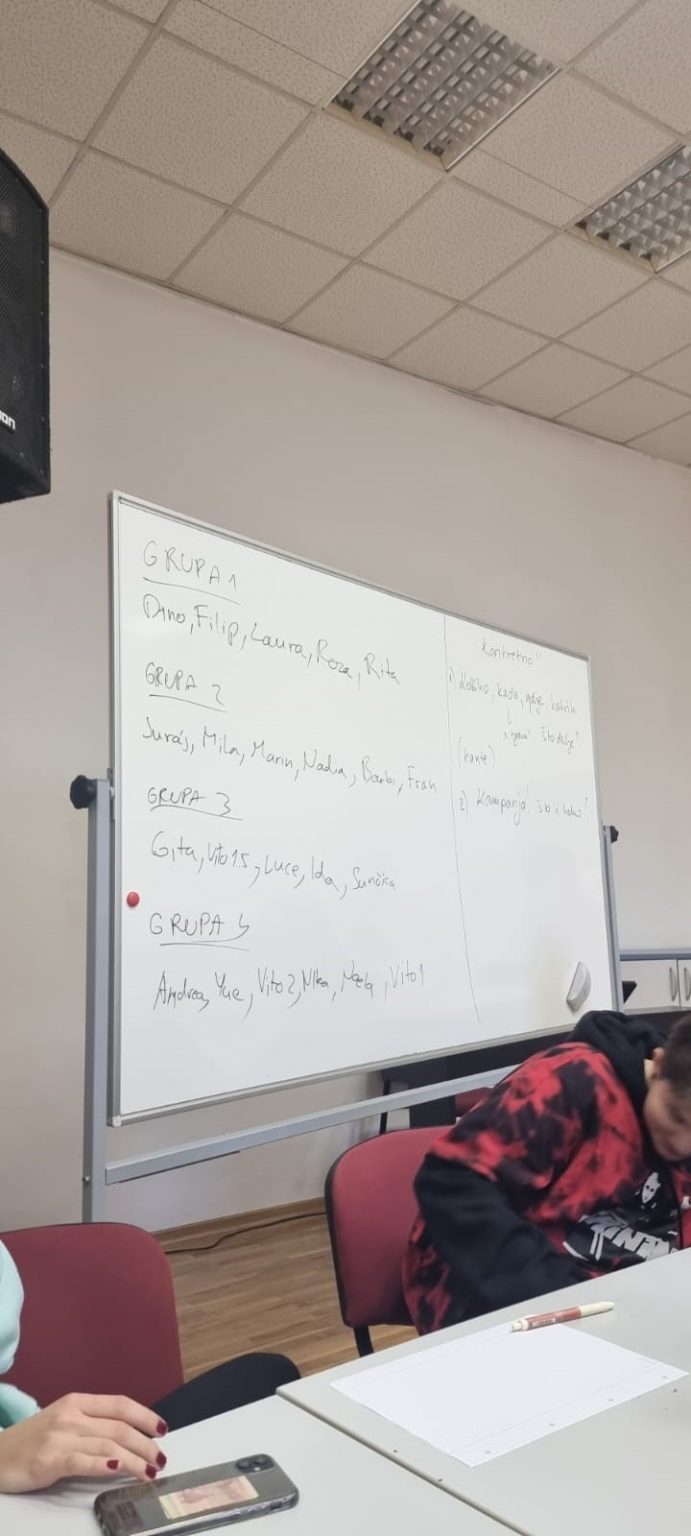 GRUPA 1
Dino, Filip, Laura, Roza, Rita
GRUPA 2
Juraj, Mila, Marin, Nadia, Barbi, Fran
GRUPA 3
Gita, Vito 1.5, Luce, Ida, Sunčica
GRUPA 4
Andrea, Yue, Vito 2, Nika, Vito 1
Konkretno!!
1) koliko, kada, gdje, kakvih
što dalje?
(kante)
2) Kampanja! što i kako?